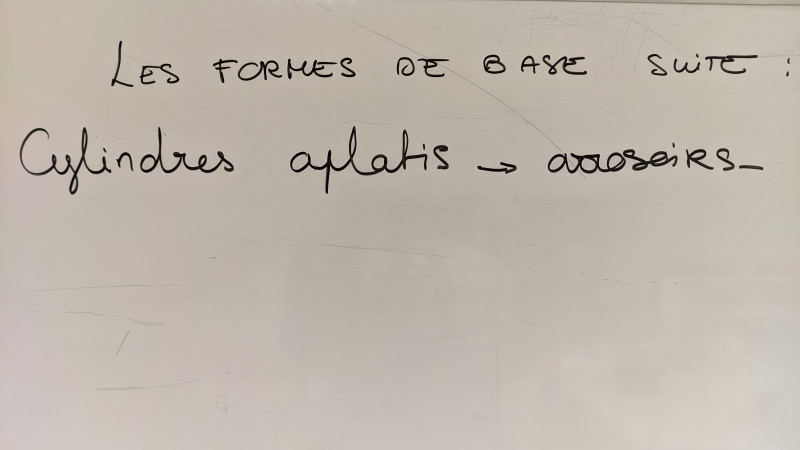 LES FORMES DE BASE SUITE :
Cylindres aplatis → arrosoirs_